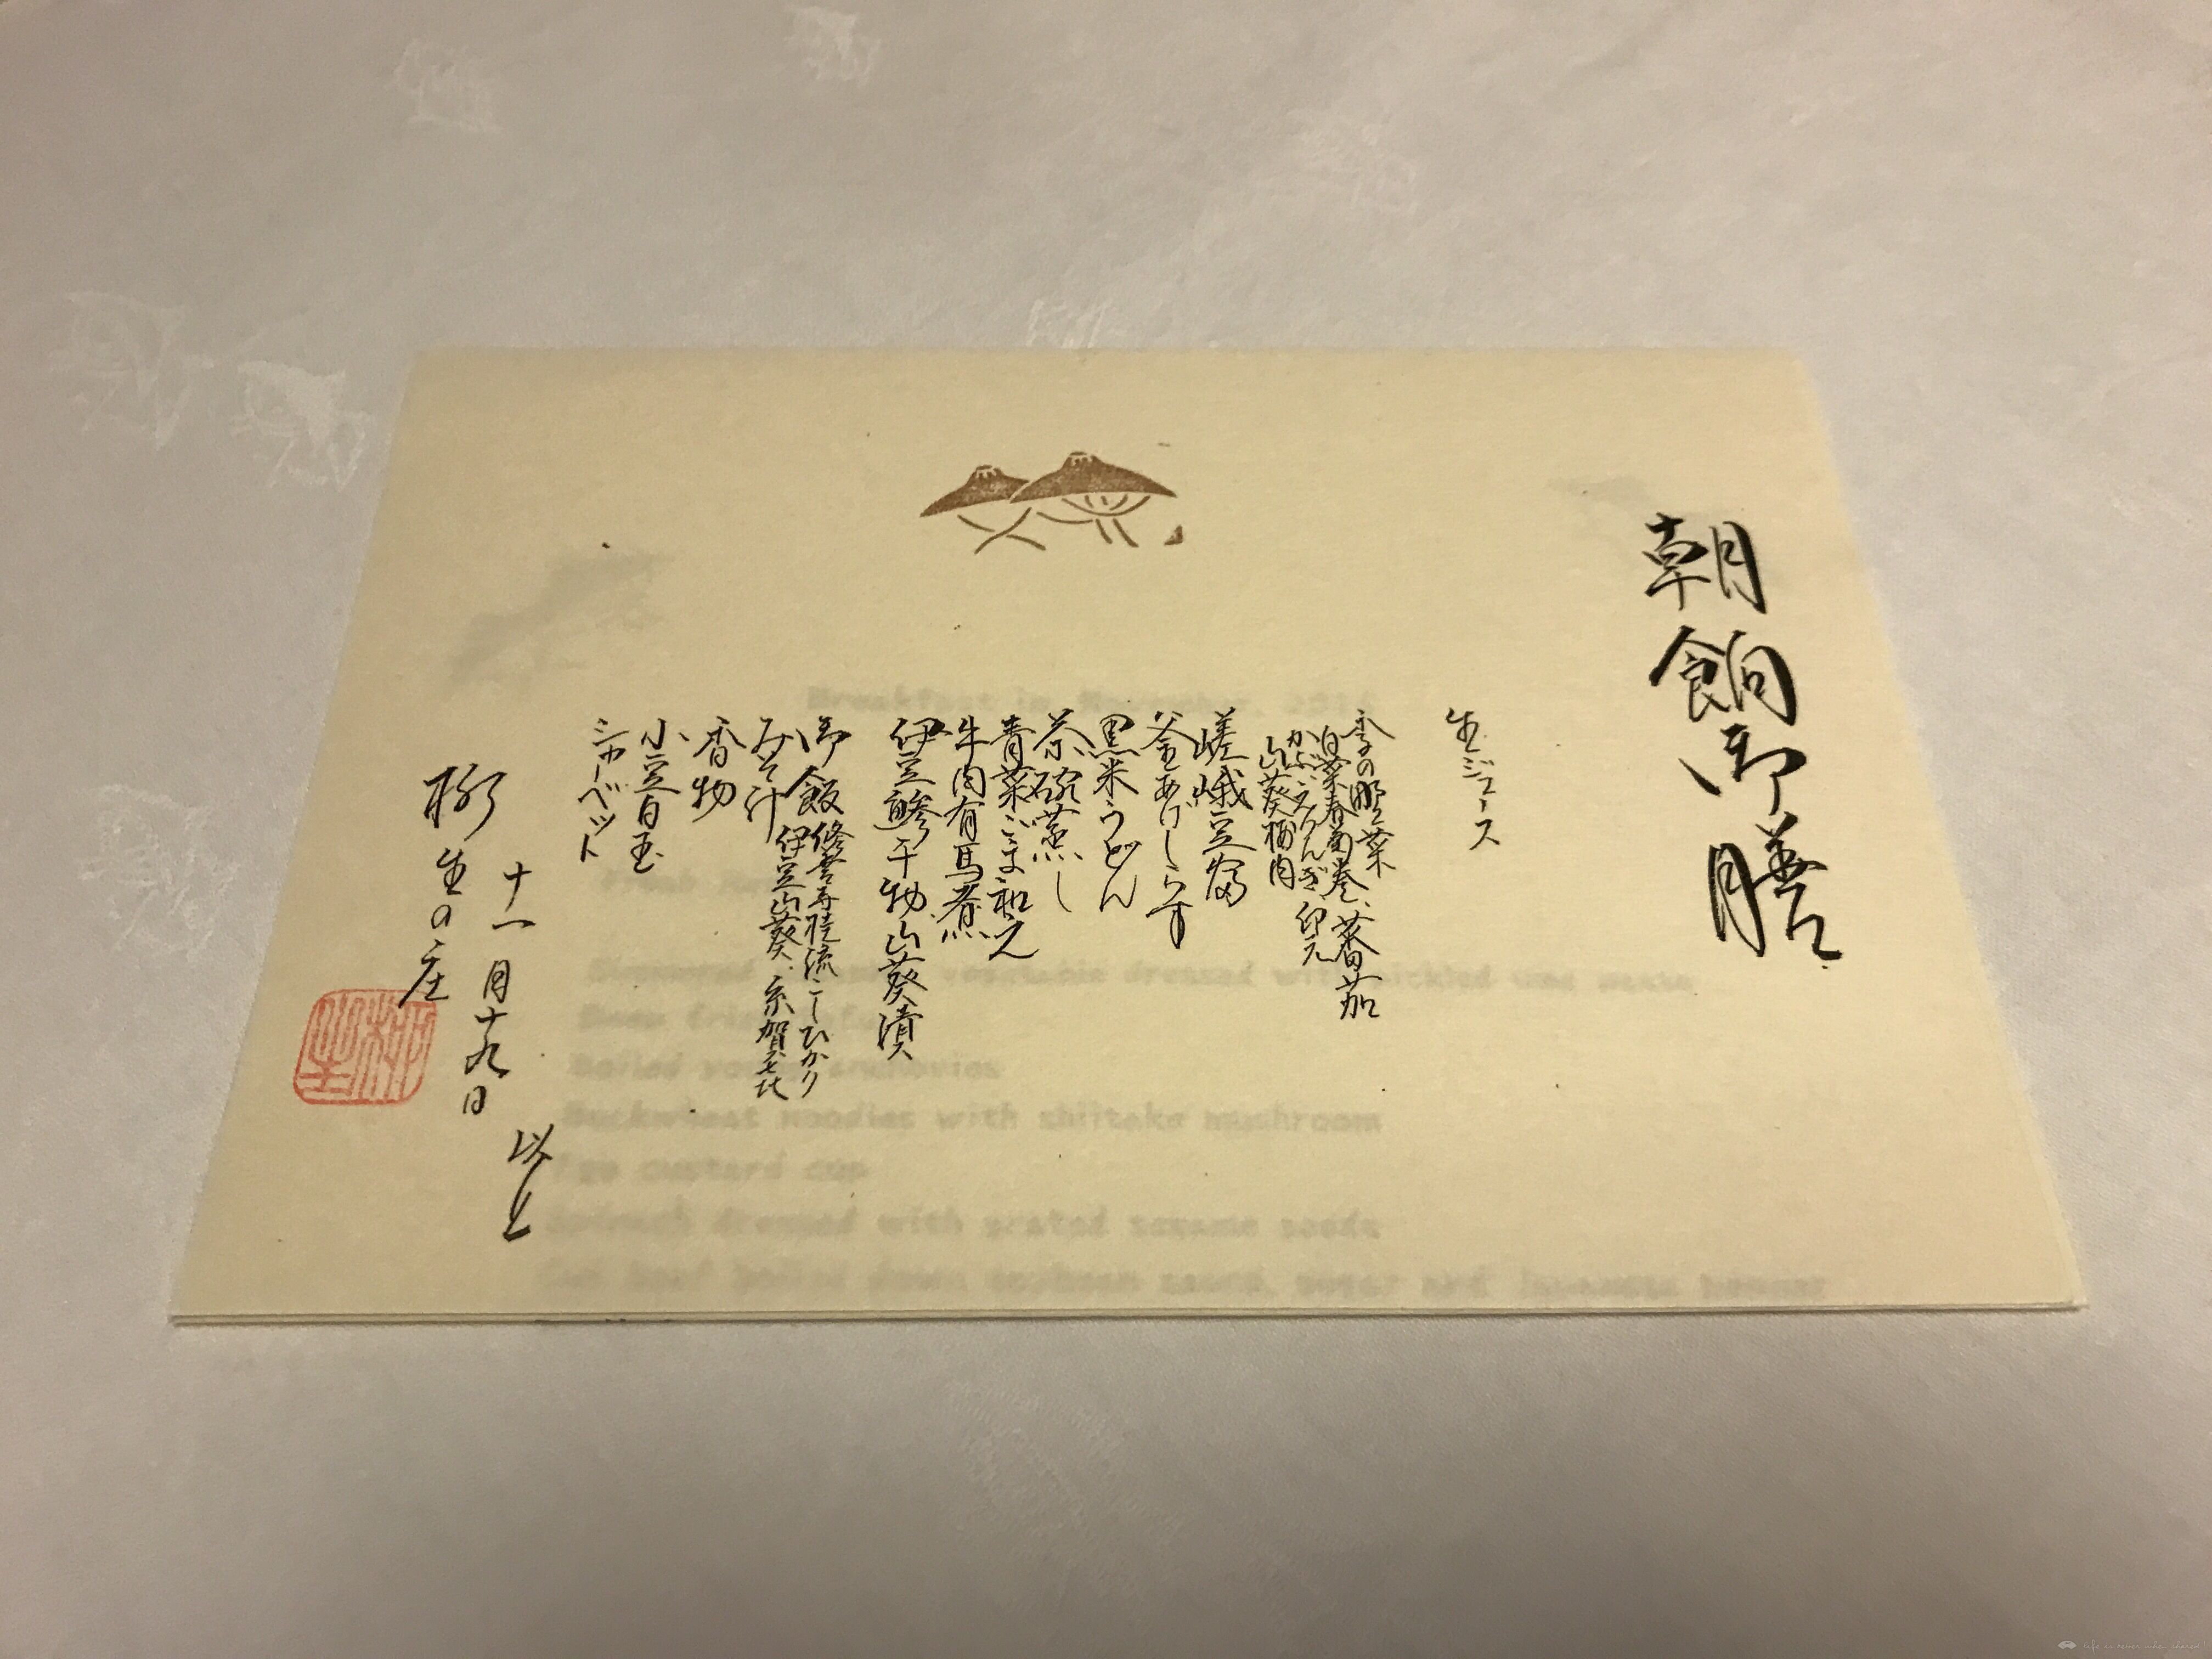 朝餉御膳
生ジュース
季の野菜
白菜春菊巻、蕃茄
かぶ、えりんぎ、印元
山葵梅肉
嵯峨豆富
釜あげしらす
黒米うどん
茶碗蒸し
青菜ごま和え
牛肉有馬煮
伊豆鯵干物、山葵漬
御飯 修善寺桂流こしひかり
伊豆山葵、糸賀喜
みそ汁
香物
小豆白玉
シャーベット
以上
十一月十九日
柳生の庄
柳生
Breakfast in November, 2016
vegetable dressed with pickled ume paste
Boiled young anchovies
Buckwheat noodles with shiitake mushroom
Egg custard cup
Spinach dressed with grated sesame seeds